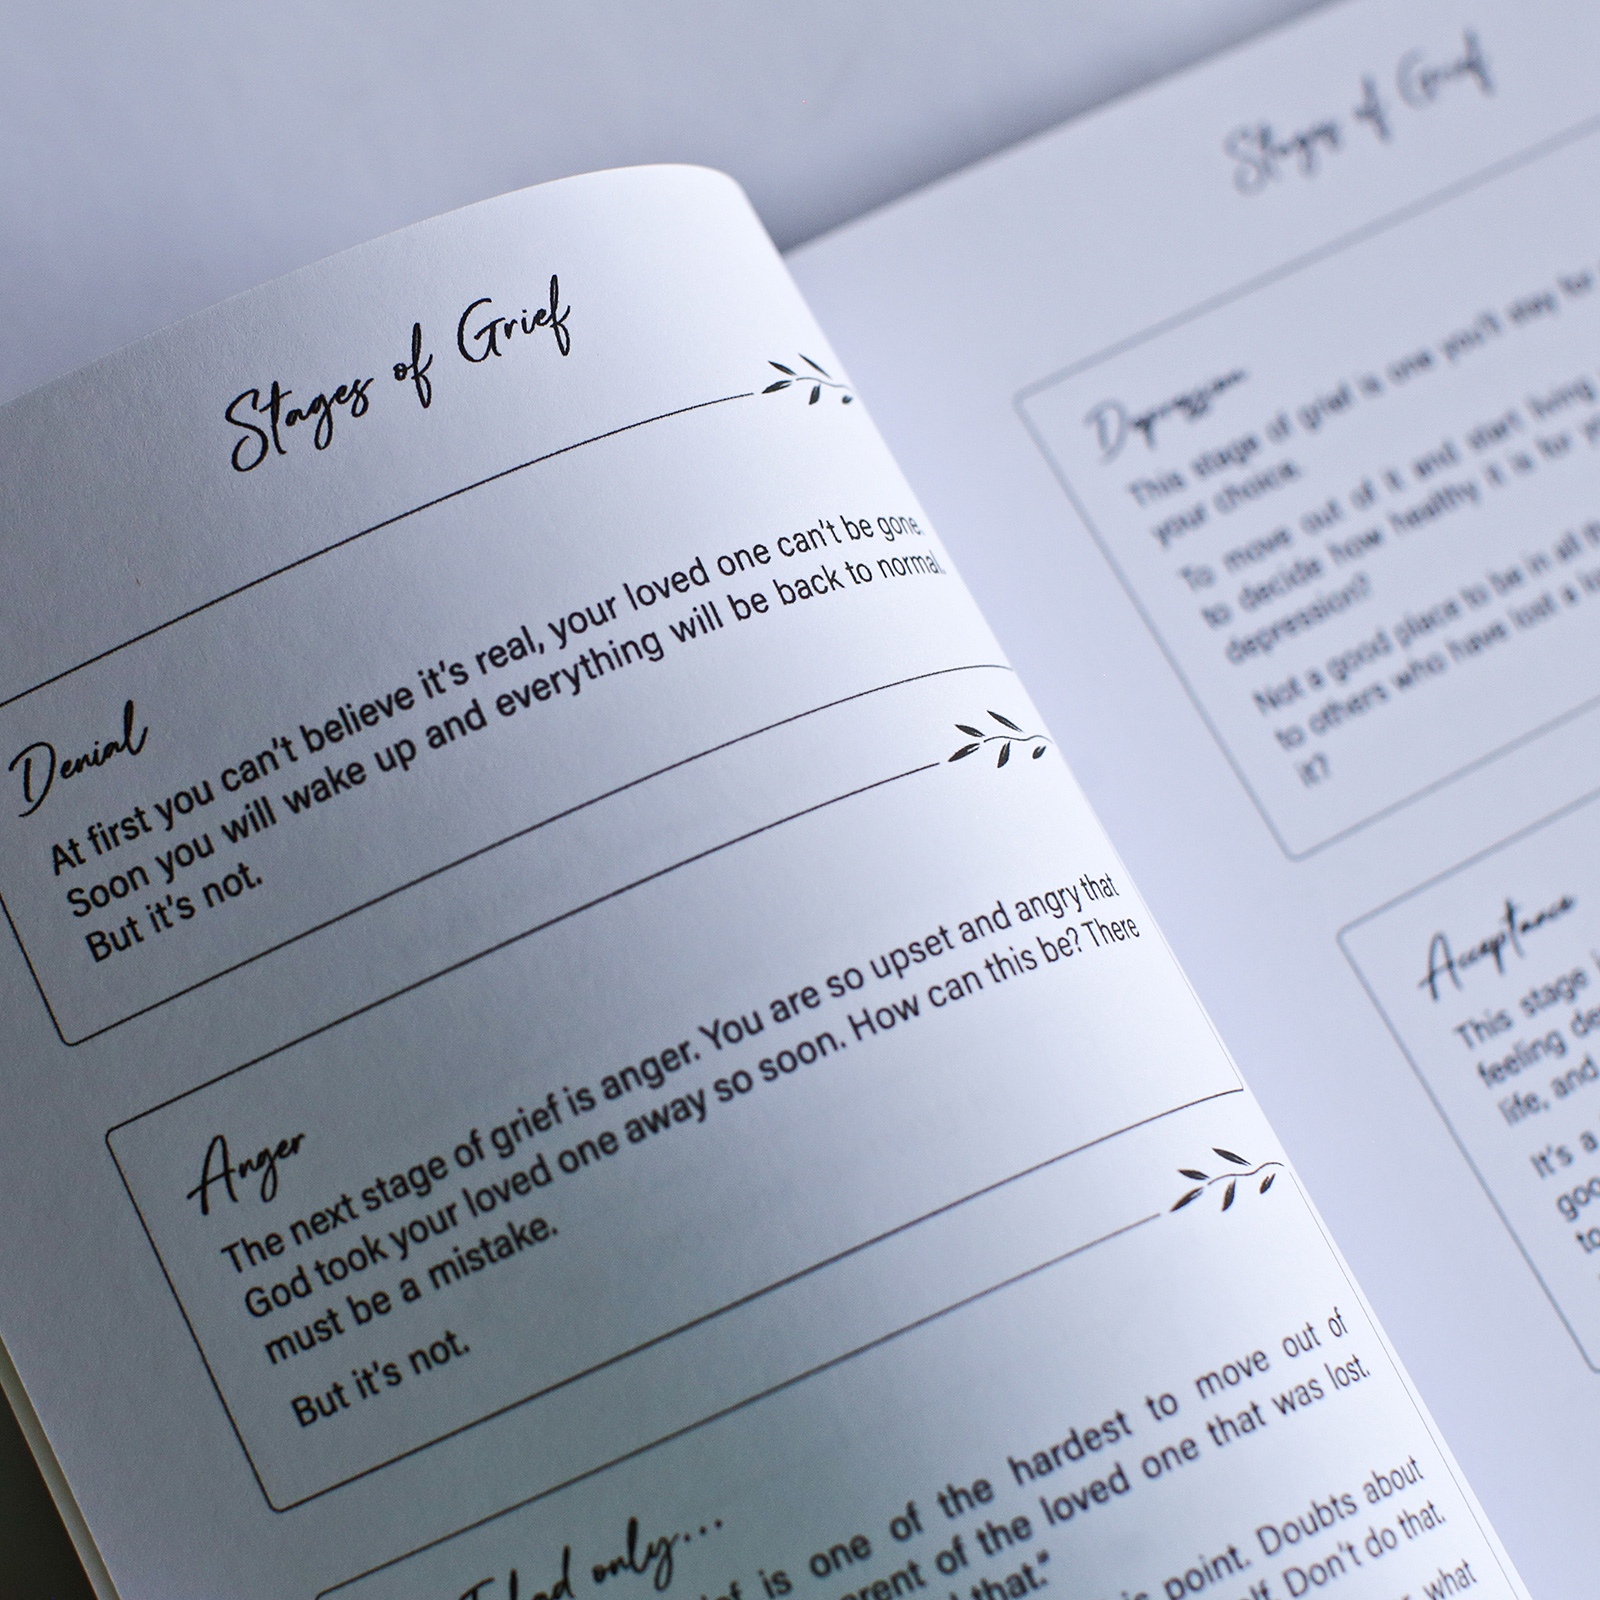 Stages of Grief
Denial
At first you can't believe it's real, your loved one can't be gone.
Soon you will wake up and everything will be back to normal.
But it's not.
Anger
The next stage of grief is anger. You are so upset and angry that
God took your loved one away so soon. How can this be? There
must be a mistake.
But it's not.
had only...
is one of the hardest to move out of
of the loved one that was lost.
that."
point. Doubts about
Don't do that.
what
Stages of Grief
Depression
This stage of grief is one you'll stay for
your choice.
To move out of it and start living
to decide how healthy it is for
depression?
Not a good place to be in all
to others who have lost a
it?
Acceptance
This stage
feeling
life, and
It's a